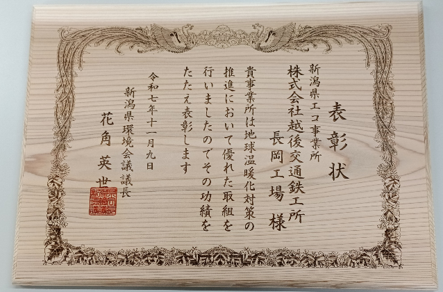 表彰状
新潟県エコ事業所
株式会社越後交通鉄工所
長岡工場 様
貴事業所は地球温暖化対策の
推進において優れた取組を
行いましたのでその功績を
たたえ表彰します
令和七年十一月九日
新潟県環境会議議長
花角 英世